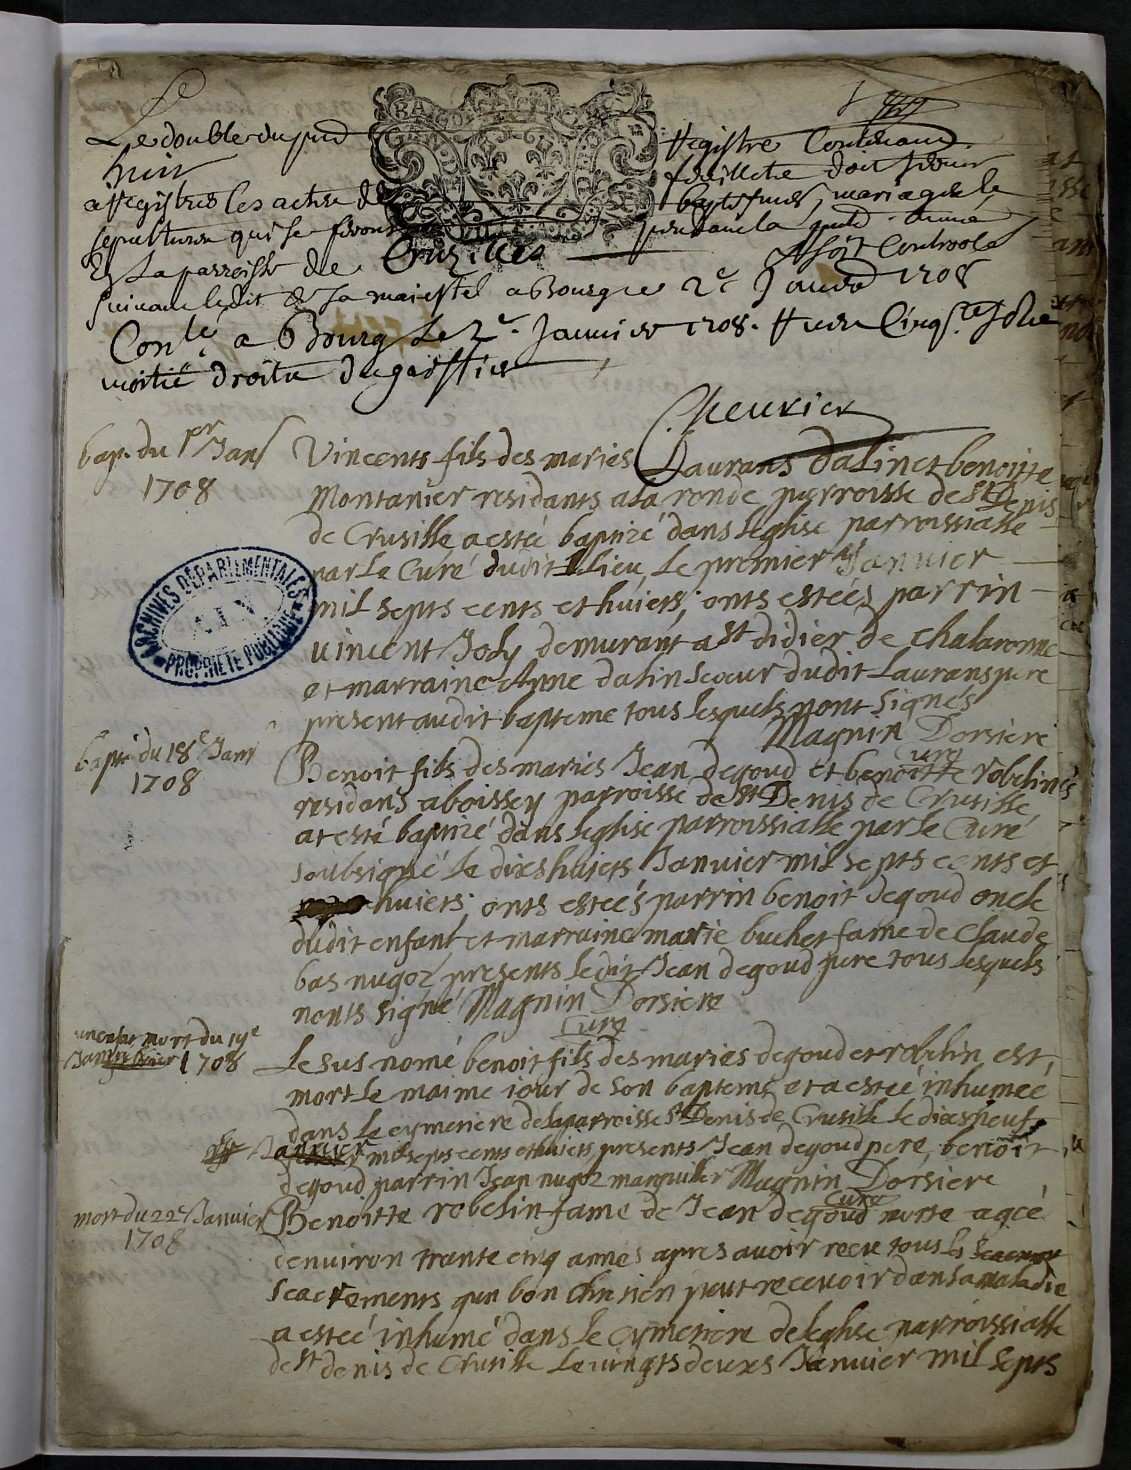 Le double du pnt Registre Contenant
huit feuillets doit servir
a Registrer les actes de baptesmes, mariages &
sepultures qui se feront pendant la pnte année
En la parroisse de Cruzilles Assoit Controolé
suivant ledit de sa majesté a Bourg ce 2e Janvier 1708
Conlé a Bourg le 2e Janvier 1708. 
moitié droits du greffier
Cheurier
bap. du 1er Janr
1708
Vincents fils des maries Laurans dalin et benoitte
Montanier residants a la ronde parroisse de St Denis
de Crusille a estée baptizé dans leglise parroissialle
par le Curé dudit lieu, le premier Janvier
mil septs cents et huiets, onts estées parrin
vincent Joly demurant a St didier de chalaronne
et marraine Anne dalin soeur dudit Laurans pere
present audit bapteme tous lesquels nont signés
Magnin Dorsiere
Curé
bapt. du 18e Janr
1708
Benoit fils des maries Jean degoud et benoitte robelin
residans a boissey parroisse de St Denis de Crusille
at esté baptizé dans leglise parroissialle par le Curé
soubsigné le dixs huiets Janvier mil septs cents et
huiets, onts estées parrin benoit degoud oncle
dudit enfant et marraine marie buchet fame de Claude
bas nugoz presents ledit Jean degoud pere tous lesquels
nonts signé Magnin Dorsiere
Curé
un enfant mort du 19e
Janvier 1708
Le sus nomé benoit fils des maries degoud et robelin est
mort le maime iour de son bapteme et a estée inhumée
dans le cymetiere de la parroisse St Denis de Crusille le dixs neuf
Janvier mil septs cents et huiets presents Jean degoud pere, benoit
degoud parrin Jean nugoz marguillier Magnin Dorsiere
Curé
mort du 22e Janvier
1708
Benoitte robelin fame de Jean degoud morte agée
denviron trante cinq annés apres avoir receu tous les
sacrements qun bon chretien peut recevoir dans sa maladie
a estée inhumé dans le cymetiere de leglise parroissialle
de St denis de Crusille le vingts deuxs Janvier mil septs
ARCHIVES DÉPARTEMENTALES
AIN
PROPRIÉTÉ PUBLIQUE